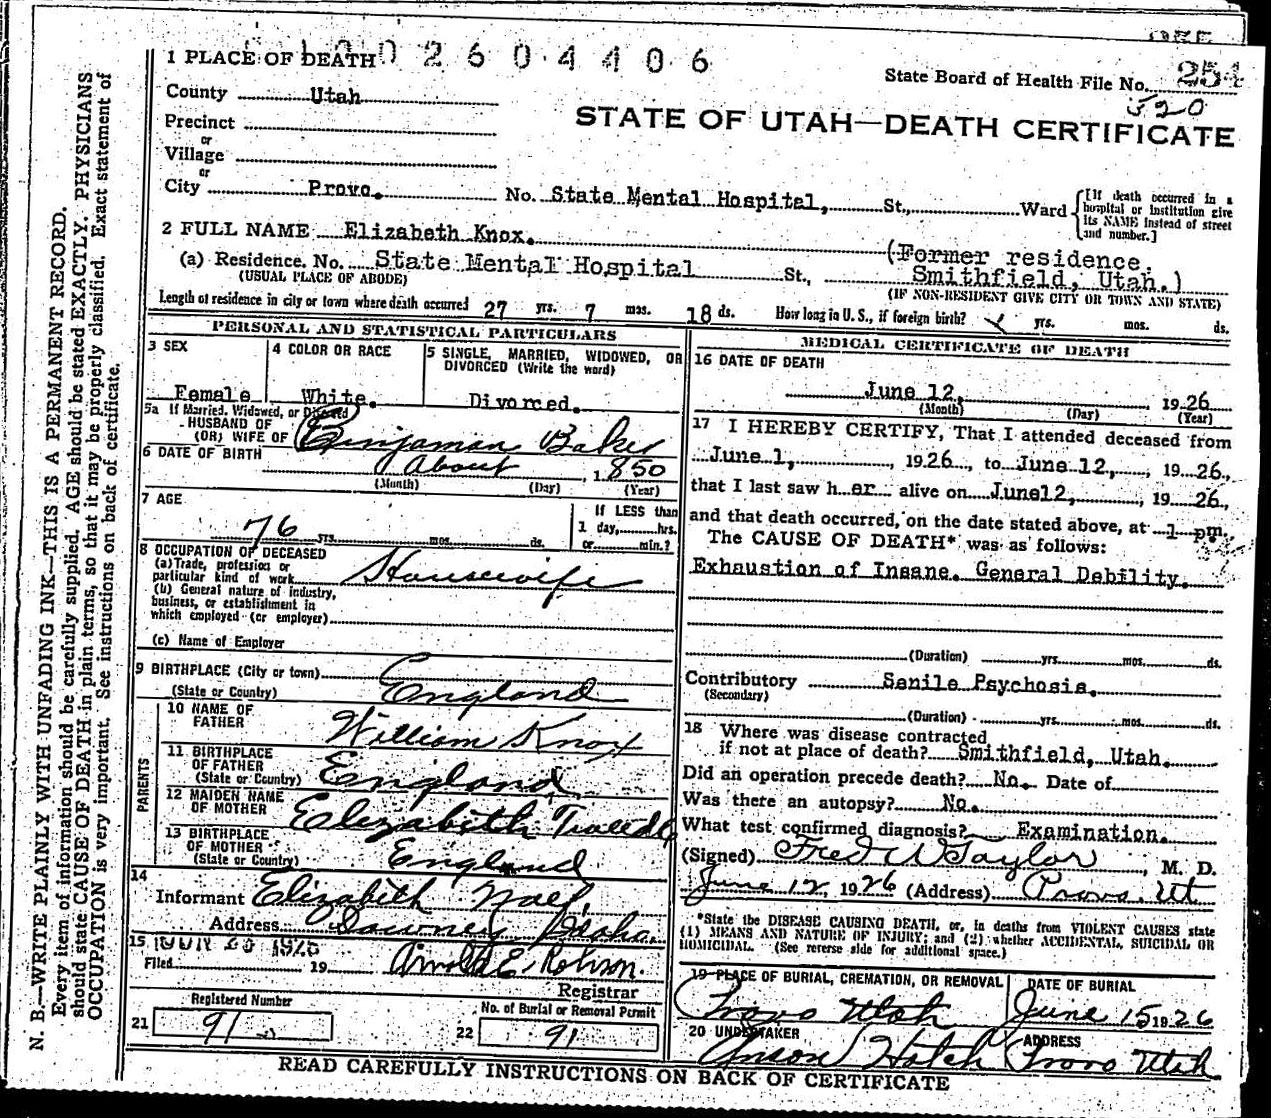 1 PLACE OF DEATH 0 2 6 0 4 4 0 6
State Board of Health File No. 254
520
County Utah
STATE OF UTAH—DEATH CERTIFICATE
Precinct
or
Village
or
City Provo. No. State Mental Hospital, St., Ward [If death occurred in a hospital or institution give its NAME instead of street and number.]
2 FULL NAME Elizabeth Knox.
(Former residence.
(a) Residence. No. State Mental Hospital St., Smithfield, Utah.)
(USUAL PLACE OF ABODE) (IF NON-RESIDENT GIVE CITY OR TOWN AND STATE)
Length of residence in city or town where death occurred 27 yrs. 7 mos. 18 ds. How long in U. S., if foreign birth? yrs. mos. ds.
PERSONAL AND STATISTICAL PARTICULARS
3 SEX
Female
4 COLOR OR RACE
White.
5 SINGLE, MARRIED, WIDOWED, OR
DIVORCED (Write the word)
Divorced.
5a If Married, Widowed, or Divorced
HUSBAND OF
(OR) WIFE OF Benjaman Baker
6 DATE OF BIRTH About, 1850
(Month) (Day) (Year)
7 AGE
76 yrs. mos. ds.
If LESS than
1 day, hrs.
or min.?
8 OCCUPATION OF DECEASED
(a) Trade, profession or
particular kind of work Housewife
(b) General nature of industry,
business, or establishment in
which employed (or employer)
(c) Name of Employer
9 BIRTHPLACE (City or town)
(State or Country) England
PARENTS
10 NAME OF
FATHER William Knox
11 BIRTHPLACE
OF FATHER
(State or Country) England
12 MAIDEN NAME
OF MOTHER Elizabeth
13 BIRTHPLACE
OF MOTHER
(State or Country) England
14
Informant Elizabeth
Address Downey Idaho.
15
Filed JUN 1926 19 Arnold E. Robison.
Registrar
Registered Number
21 91
No. of Burial or Removal Permit
22 91
MEDICAL CERTIFICATE OF DEATH
16 DATE OF DEATH
June 12, 1926
(Month) (Day) (Year)
17 I HEREBY CERTIFY, That I attended deceased from
June 1, 1926, to June 12, 1926,
that I last saw her alive on June12, 1926,
and that death occurred, on the date stated above, at 1 pm.
The CAUSE OF DEATH* was as follows:
Exhaustion of Insane. General Debility.
(Duration) yrs. mos. ds.
Contributory Senile Psychosis.
(Secondary)
(Duration) yrs. mos. ds.
18 Where was disease contracted
if not at place of death? Smithfield, Utah.
Did an operation precede death? No. Date of
Was there an autopsy? No.
What test confirmed diagnosis? Examination.
(Signed) Fred W Taylor, M. D.
June 12, 1926 (Address) Provo. Ut
*State the DISEASE CAUSING DEATH, or, in deaths from VIOLENT CAUSES state
(1) MEANS AND NATURE OF INJURY; and (2) whether ACCIDENTAL, SUICIDAL OR
HOMICIDAL. (See reverse side for additional space.)
19 PLACE OF BURIAL, CREMATION, OR REMOVAL
Provo Utah
DATE OF BURIAL
June 15 1926
20 UNDERTAKER
Anson Hatch
ADDRESS
Provo Utah
READ CAREFULLY INSTRUCTIONS ON BACK OF CERTIFICATE
N. B.—WRITE PLAINLY WITH UNFADING INK—THIS IS A PERMANENT RECORD.
Every item of information should be carefully supplied. AGE should be stated EXACTLY. PHYSICIANS
should state CAUSE OF DEATH in plain terms, so that it may be properly classified. Exact statement of
OCCUPATION is very important. See instructions on back of certificate.